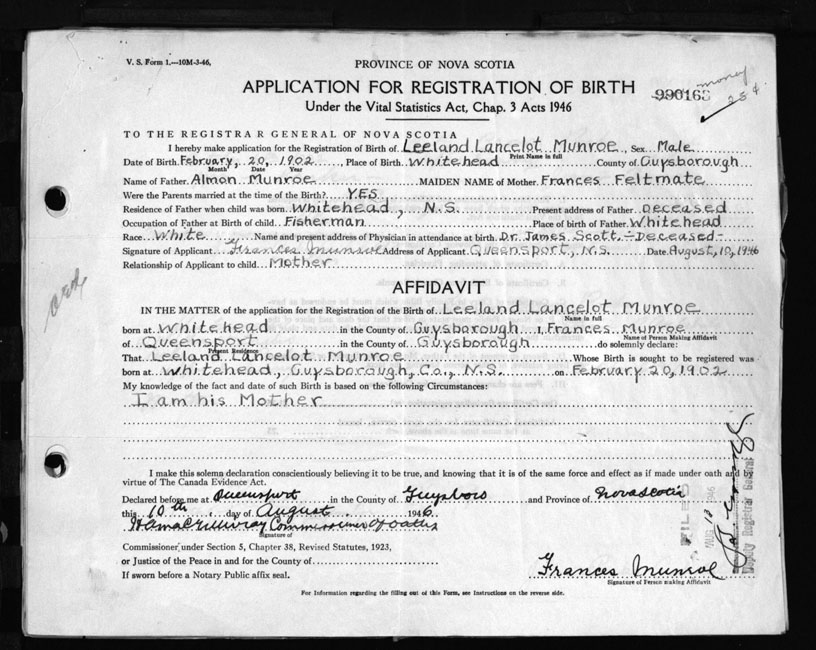 V. S. Form 1.—10M-3-46,
PROVINCE OF NOVA SCOTIA
APPLICATION FOR REGISTRATION OF BIRTH
990163
money
25¢
Under the Vital Statistics Act, Chap. 3 Acts 1946
TO THE REGISTRAR GENERAL OF NOVA SCOTIA
I hereby make application for the Registration of Birth of Leeland Lancelot Munroe, Sex Male
Print Name in full
Date of Birth February, 20, 1902 Place of Birth Whitehead County of Guysborough
Month Date Year
Name of Father Almon Munroe MAIDEN NAME of Mother Frances Feltmate
Were the Parents married at the time of the Birth? YES
Residence of Father when child was born Whitehead, N.S. Present address of Father Deceased
Occupation of Father at Birth of child Fisherman Place of birth of Father Whitehead
Race White Name and present address of Physician in attendance at birth Dr. James Scott - Deceased -
Signature of Applicant Frances Munroe Address of Applicant Queensport, N.S. Date August, 10, 1946
Relationship of Applicant to child Mother
ord
AFFIDAVIT
IN THE MATTER of the application for the Registration of the Birth of Leeland Lancelot Munroe
Name in full
born at Whitehead in the County of Guysborough I, Frances Munroe
Name of Person Making Affidavit
of Queensport in the County of Guysborough do solemnly declare:
Present Residence
That Leeland Lancelot Munroe Whose Birth is sought to be registered was
born at Whitehead, Guysborough, Co., N.S. on February 20, 1902
My knowledge of the fact and date of such Birth is based on the following Circumstances:
I am his Mother
I make this solema declaration conscientiously believing it to be true, and knowing that it is of the same force and effect as if made under oath and by
virtue of The Canada Evidence Act.
Declared before me at Queensport in the County of Guysboro and Province of Nova Scotia
this 10th day of August 1946.
Commissioner of Oaths
Signature of
Commissioner under Section 5, Chapter 38, Revised Statutes, 1923,
or Justice of the Peace in and for the County of
If sworn before a Notary Public affix seal.
Frances Munroe
Signature of Person making Affidavit
FILED
AUG 10 1946
Deputy Registrar General
For Information regarding the filling out of this Form, see Instructions on the reverse side.